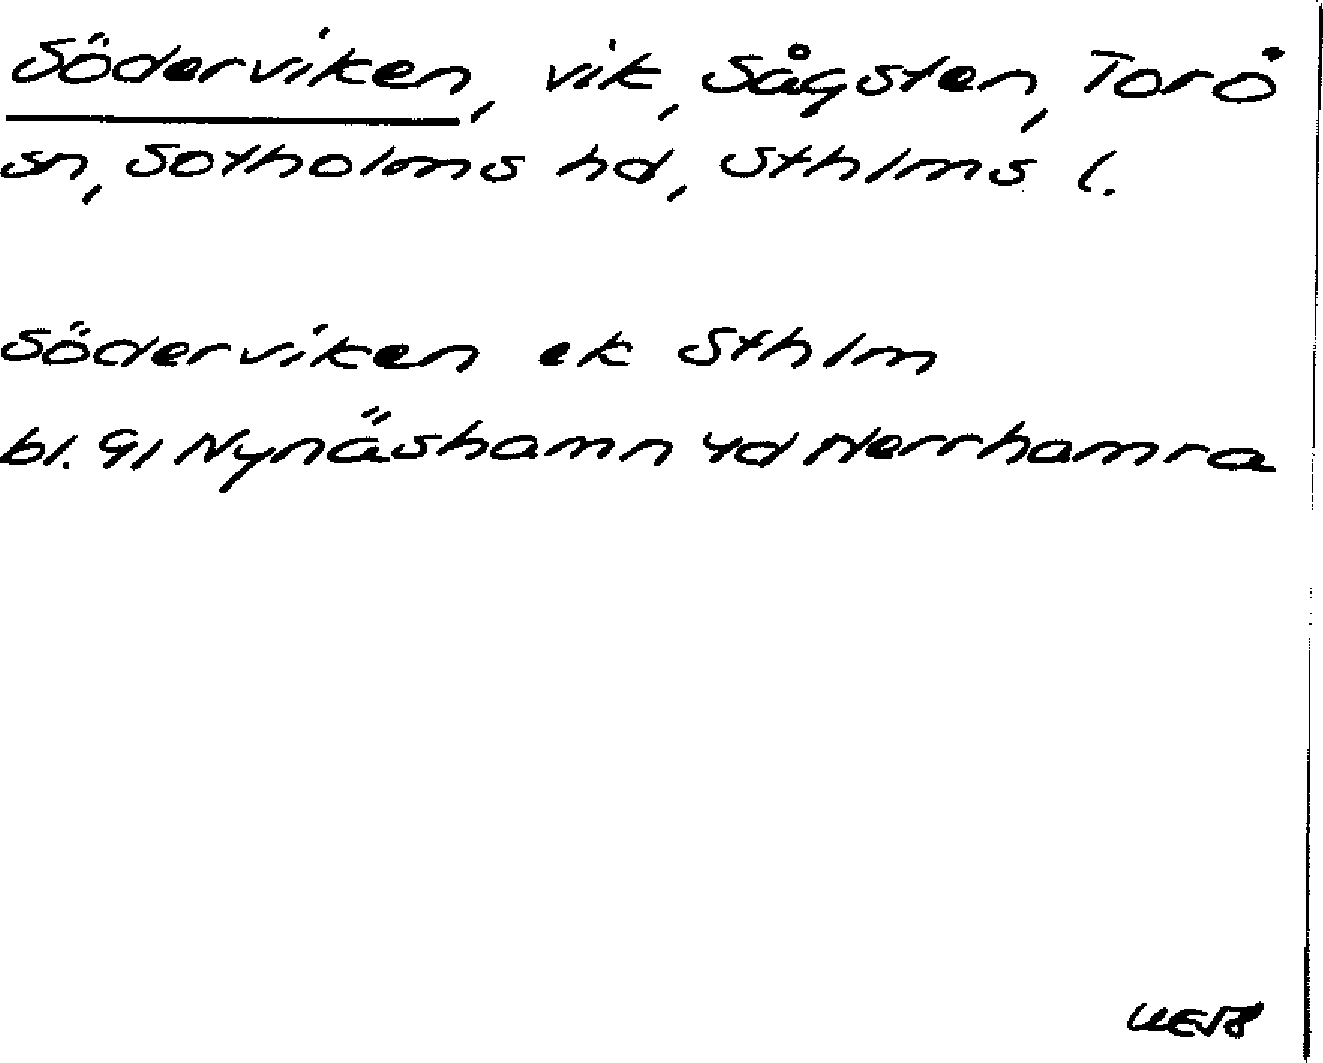 Söderviken, vik, Sågsten, Torö
sn, Sotholms hd, Sthlms l.
Söderviken ek Sthlm
bl. 91 Nynäshamn 4d Herrhamra